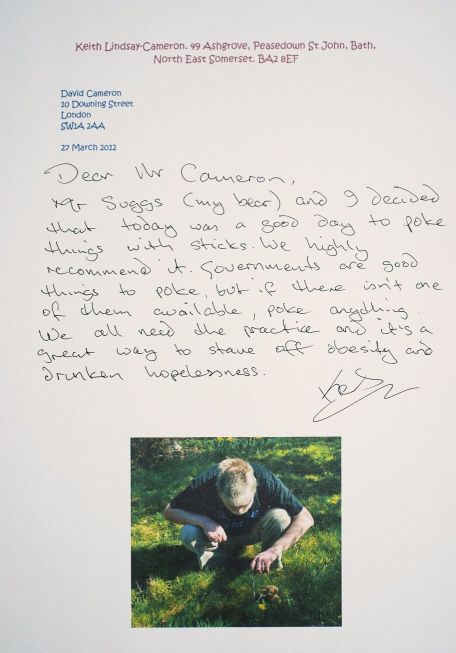 Keith Lindsay-Cameron. 49 Ashgrove, Peasedown St John, Bath,
North East Somerset. BA2 8EF
David Cameron
10 Downing Street
London
SW1A 2AA
27 March 2012
Dear Mr Cameron,
Mr Suggs (my bear) and I decided
that today was a good day to poke
things with sticks. We highly
recommend it. Governments are good
things to poke, but if there isn't one
of them available, poke anything.
We all need the practice and it's a
great way to stave off obesity and
drunken hopelessness.